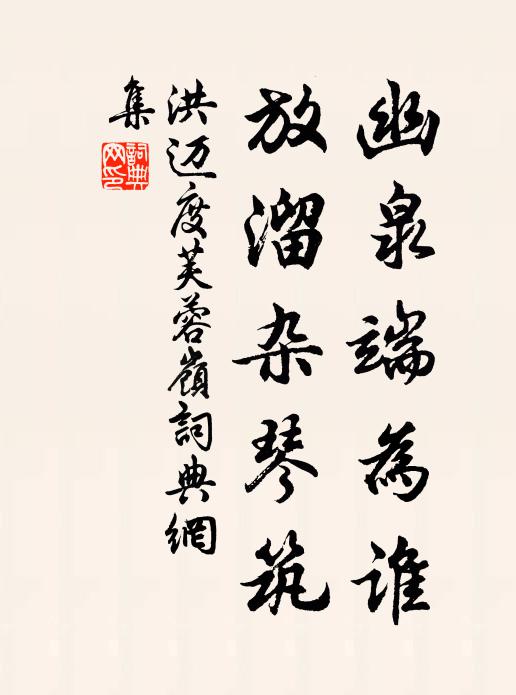 幽泉端為谁
放溜杂琴筑
洪迈度芙蓉嶺詞典網
集
詞典网印